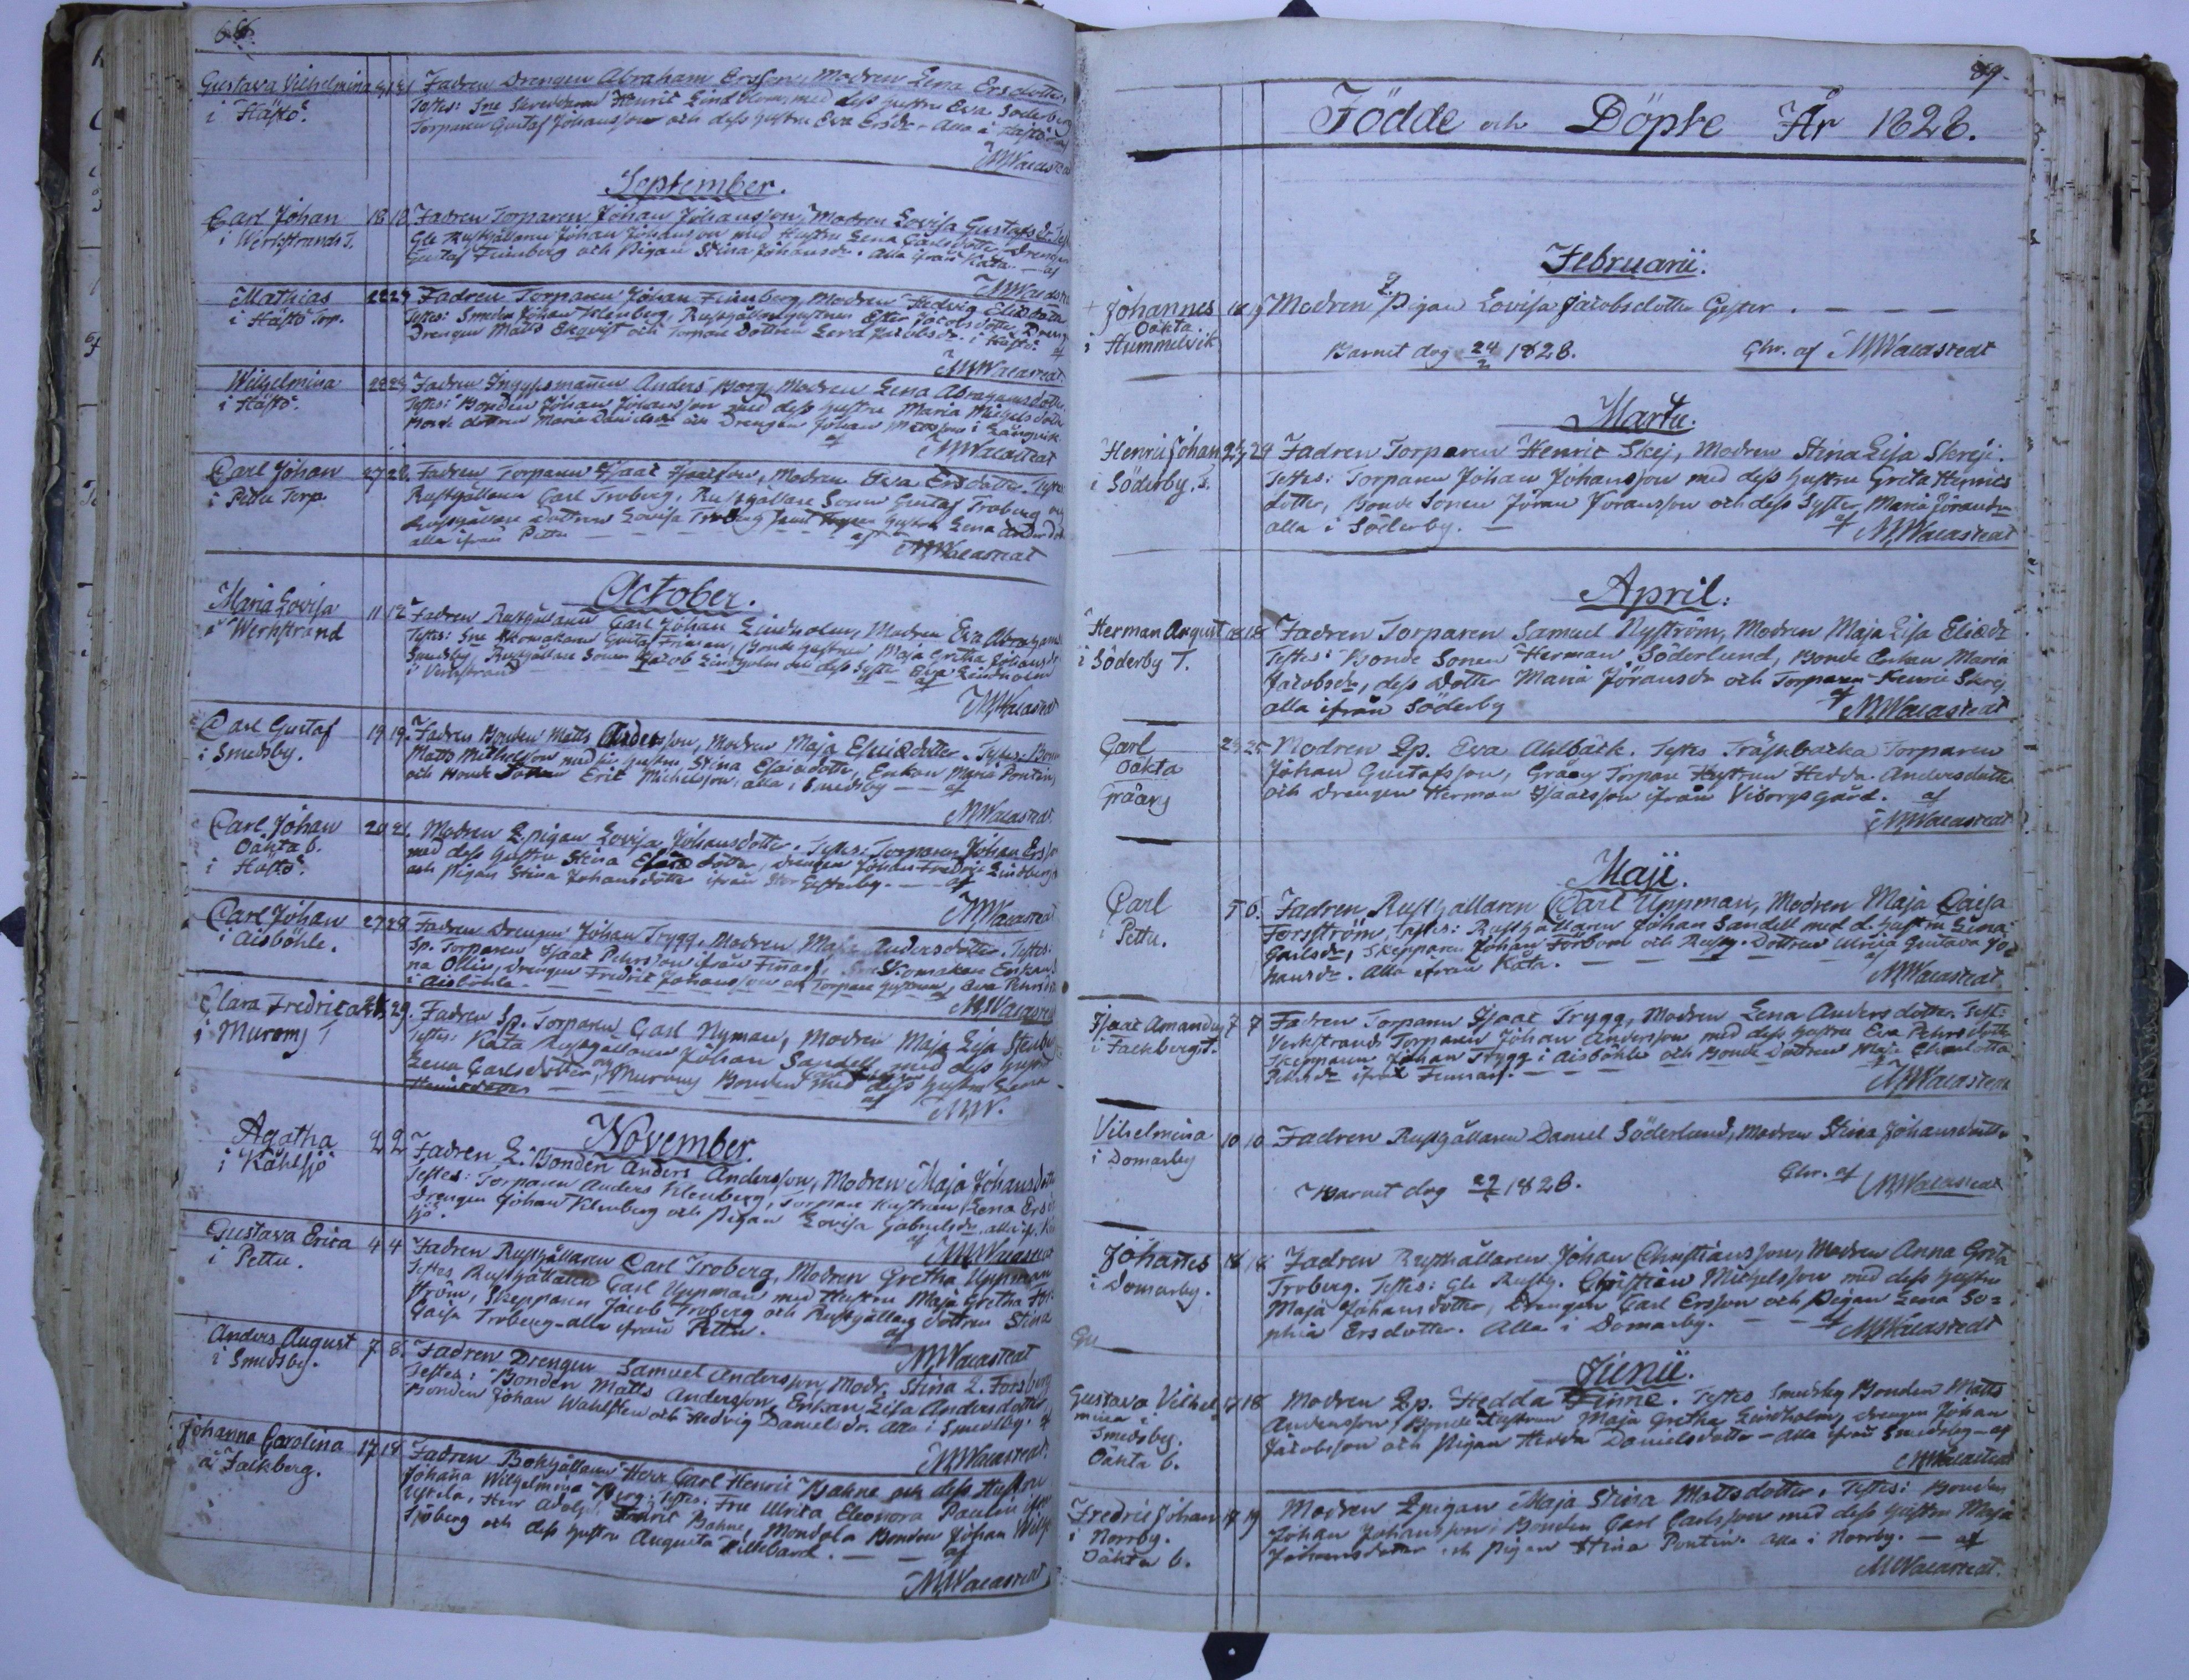 68.
Gustava Vilhelmina
i Hästö.
Fadren Drengen Abraham Ersson, Modren Lena Ersdotter,
Testes: Sne Skreddaren Henric Lindblom, med dess hustru Eva Söderberg
Torparen Gustaf Johansson och dess hustru Eva Ersdr - Alla i Hästö af
M,Walastedt
September.
Carl Johan
i Werkstrands T.
18 18
Fadren Torparen Johan Johansson, Modren Lovisa Gustafsdr
Gle Rusthållaren Johan Johansson med Hustru Lena Carlsdotter, Drengen
Gustaf Finnberg och Pigan Stina Johansdr. Alla ifrån Kåta. — af
M,Walastedt
Mathias
i Hästö Torp.
Fadren Torparen Johan Finnberg, Modren Hedvig Eliædotter
Testes: Smeden Johan Vilenberg, Rusthållarehustrun Ester Jacobsdotter, Drengen
Drengen Matts Ekqvist och Torpare Dottren Lovisa Jacobsdr. i Hästö. af
M,Walastedt.
Wilhelmina
i Hästö.
Fadren Inhysesmannen Anders Borg, Modren Lena Abrahamsdotter
Testes: Bonden Johan Johansson med dess hustru Maria Michelsdotter
Bonde dottren Maria Danielsdr och Drengen Johan Mattsson i Långvik
af M,Walastedt
Carl Johan
i Pettu Torp.
27 28
Fadren Torparen Isaac Isacsson, Modren Eva Ersdotter. Testes
Rusthållaren Carl Troberg, Rusthållare Sonen Gustaf Troberg och
Rusthållare Dottren Lovisa Troberg samt hustru Lena
alla ifrån Pettu — af
M,Walastedt
October.
Maria Lovisa
i Werkstrand
11 12
Fadren Rusthållaren Carl Johan Lindholm, Modren Eva Abrahams
Testes: Sne Skomakaren Gustaf Frisen, Bonde hustrun Maja Gretha Johansdr
Smedsby, Rusthållare Sonen Jacob Lindholm och dess Syster Eva Lindholm
i Verkstrand af
M,Walastedt
Carl Gustaf
i Smedsby.
19 19.
Fadren Bonden Matts Andersson, Modren Maja Esaiædotter. Testes: Bonden
Matts Michelsson med sin hustru Stina Esaiædotter, Enkan Maria Pontin,
och Bonde Sonen Eric Michelsson, alla i Smedsby — af
M,Walastedt.
Carl Johan
Oäkta b.
i Hästö.
20 21.
Modren L,pigan Lovisa Johansdotter. Testes: Torparen Johan Ersson
med dess hustru Stina Esaiædotter, Drengen Johan Fredric Lindberg
och Pigan Stina Johansdotter ifrån Stor Gesterby. — af
M,Walastedt
Carl Johan
i Aisböhle.
27 28
Fadren Drengen Johan Trygg, Modren Maja Andersdotter. Testes:
Sp. Torparen Isaac Pehrsson ifrån Finnarf, Skomakare Enkan
na Ollin, Drengen Fredric Johansson och Torpare hustrun Eva Pehrsdr
i Aisböhle — M,Walastedt
Clara Fredrica
i Murom, T
29.
Fadren Sp. Torparen Carl Nyman, Modren Maja Lisa Stenberg
Testes: Kåta Rusthållaren Johan Sandell med dess hustru
Lena Carlsdotter, och Muroms Bonden med dess hustru Lena
Henricsdotter — af M,W.
November.
Agatha
i Kåhlsjö
2 2
Fadren L. Bonden Anders Andersson, Modren Maja Johansdotter
Testes: Torparen Anders Vilenberg, Torpare Hustrun Lena Ersdr
Drengen Johan Vilenberg och Pigan Lovisa Gabrielsdr alla if. Kåhl
sjö. af M,Walastedt
Gustava Erica
i Pettu.
4 4
Fadren Rusthållaren Carl Troberg, Modren Gretha Uppman
Testes Rusthållaren Carl Uppman med Hustru Maja Gretha Fors
ström, Skepparen Jacob Troberg och Rusthållare dottren Stina
Caisa Troberg - alla ifrån Pettu. af
M,Walastedt
Anders August
i Smedsby.
7 8.
Fadren Drengen Samuel Andersson, Modr. Stina L. Forsberg
Testes: Bonden Matts Andersson, Enkan Lisa Andersdotter
Bonden Johan Wahlsten och Hedvig Danielsdr. alla i Smedsby. af
M,Walastedt.
Johanna Carolina
å Falkberg.
17 18
Fadren Bokhållaren Herr Carl Henric Bahne och dess Hustru
Johanna Wilhelmina Berg. Testes: Fru Ulrica Eleonora Paulin ifrån
Kyrkla, Herr Adolph Fredric Bahne, Mondola Bonden Johan Wilh.
Sjöberg och dess hustru Augusta Lillebard. — af
M,Walastedt
69.
Födde och Döpte År 1828.
Februarii.
Johannes
Oäkta.
i Hummelvik
18 19
Modren L. Pigan Lovisa Jacobsdotter Gester. — — —
Barnet dog 24/2 1828. Chr. af M,Walastedt
Martii.
Henric Johan
i Söderby. T.
23 24
Fadren Torparen Henric Skej, Modren Stina Lisa Skreji.
Testes: Torparen Johan Johansson med dess hustru Greta Henrics
dotter, Bonde Sonen Jöran Joransson och dess Syster Maria Joransdr
alla i Söderby. — af M,Walastedt
April.
Herman August
i Söderby T.
18 18
Fadren Torparen Samuel Nyström, Modren Maja Lisa Eliædr
Testes: Bonde Sonen Herman Söderlund, Bonde Enkan Maria
Jacobsdr, dess Dotter Maria Joransdr och Torparen Henric Skrej
alla ifrån Söderby af M,Walastedt
Carl
Oäkta
Gråarf
25
Modren Lp. Eva Ahlbäck. Testes Träskbacka Torparen
Johan Gustafsson, Gråarf Torpare Hustrun Hedda Andersdotter
och Drengen Herman Isaacsson ifrån Viborgs gård. af
M,Walastedt
Maji.
Carl
i Pettu.
5 6.
Fadren Rusthållaren Carl Uppman, Modren Maja Caisa
Forsström, Testes: Rusthållaren Johan Sandell med d. hustru Lena
Carlsdr, Skepparen Johan Forbom och Rusth. Dottren Ulrica Gustava Jo=
hansdr. Alla ifrån Kåta. — af
M,Walastedt
Isaac Amandus
i Falkbergs T.
7 7
Fadren Torparen Isaac Trygg, Modren Lena Andersdotter. Test:
Verkstrands Torparen Johan Andersson med dess hustru Eva Pehrsdotter
Skepparen Johan Trygg i Aisböhle och Bonde Dottren Maja Charlotta
Pehrsdr ifrån Finnarf. — af
M,Walastedt
Vilhelmina
i Domarby
10 10
Fadren Rusthållaren Daniel Söderlund, Modren Stina Johansdotter
Barnet dog 1828. Chr. af M,Walastedt
Johannes
i Domarby.
18 18
Fadren Rusthållaren Johan Christiansson, Modren Anna Greta
Troberg. Testes: Gle Rusth. Christian Michelsson med dess hustru
Maja Johansdotter, Drengen Carl Ersson och Pigan Lena So=
phia Ersdotter. Alla i Domarby. — af M,Walastedt
Gu
Junii.
Gustava Vilhel
mina i
Smedsby.
Oäkta b.
17 18
Modren Lp. Hedda Finne. Testes Smedsby Bonden Matts
Andersson, Bonde Hustrun Maja Gretha Lindholm, Drengen Johan
Jacobsson och Pigan Hedda Danielsdotter - alla ifrån Smedsby - af
M,Walastedt
Fredric Johan
i Norrby.
Oäkta b.
19
Modren L,pigan Maja Stina Mattsdotter. Testes: Bonden
Johan Johansson, Bonden Carl Carlsson med dess hustru Maja
Johansdotter och Pigan Stina Pontin. alla i Norrby. — af
M,Walastedt.